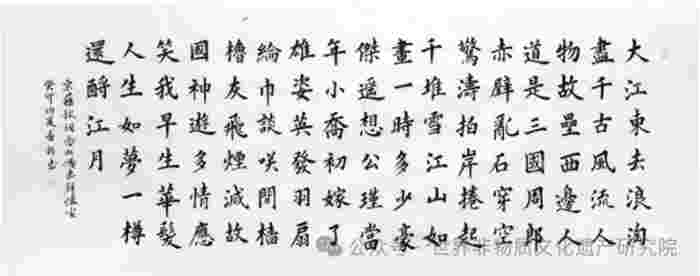 大江東去浪淘
盡千古風流人
物故壘西邊人
道是三國周郎
赤壁亂石穿空
驚濤拍岸捲起
千堆雪江山如
畫一時多少豪
傑遥想公瑾當
年小喬初嫁了
雄姿英發羽扇
綸巾談咲間檣
櫓灰飛煙滅故
國神遊多情應
笑我早生華髮
人生如夢一樽
還酹江月
宋蘇軾詞念奴嬌赤壁懷古
公众号 · 世界非物质文化遗产研究院